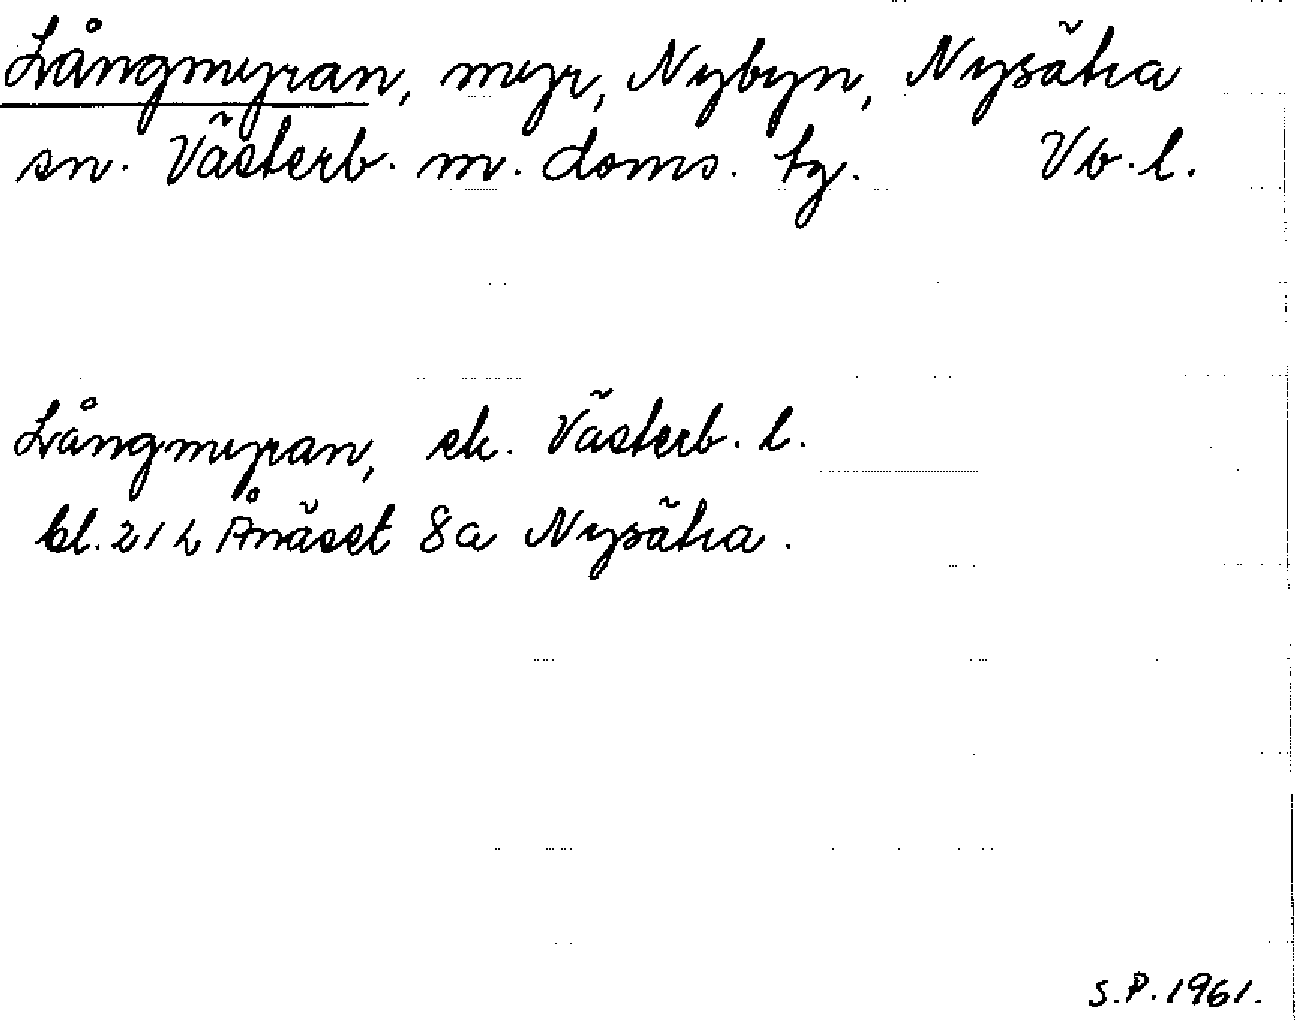 Långmyran, myr, Nybyn, Nysätra
sn. Västerb. m. doms. tg. Vb. l.
Långmyran, ek. Västerb. l.
bl. 21 L Ånäset 8a Nysätra.
S.P. 1961.